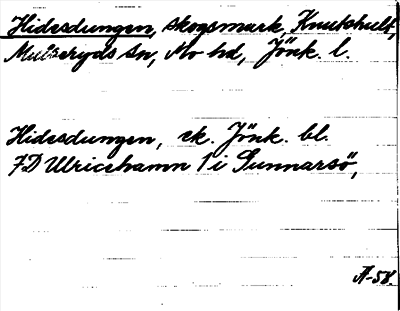 Hidesdungen, skogsmark, Knutshult,
Mulseryds sn, Mo hd, Jönk. l.
Hidesdungen, ek. Jönk. bl.
7D Ulricehamn 1 i Gunnarsö,
A-58.